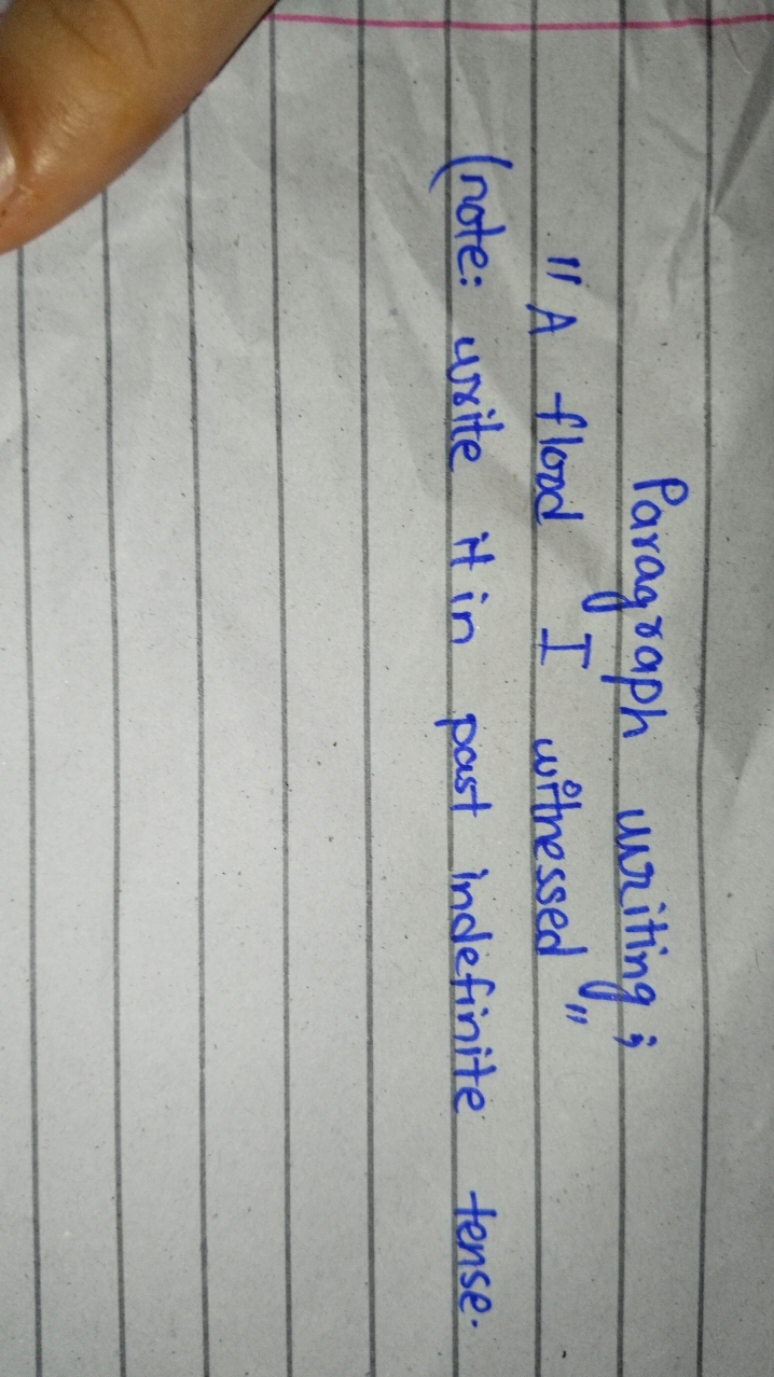 Paragraph writing;
"A flood I witnessed"
(note: write it in past indefinite tense.